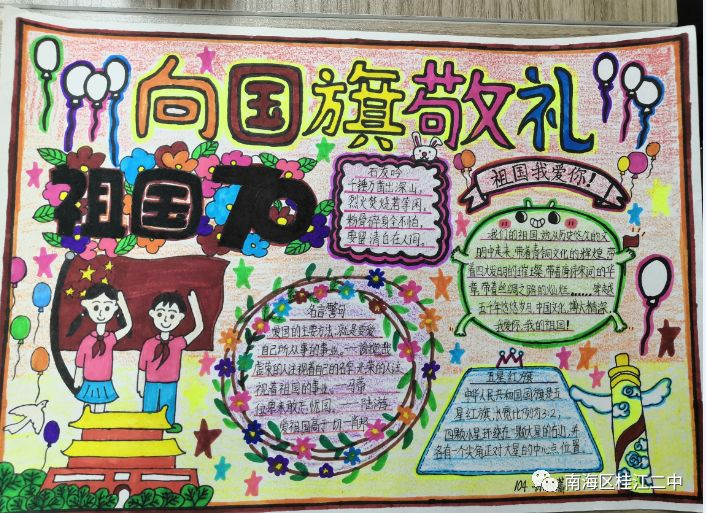 向国旗敬礼
祖国70
石灰吟
千锤万凿出深山,
烈火焚烧若等闲,
粉骨碎身全不怕,
要留清白在人间。
祖国我爱你!
我们的祖国,她从历史悠久的文
明中走来,带着青铜文化的辉煌,带
着四大发明的璀璨,带着唐诗宋词的平
带着丝绸之路的灿烂………穿越
五千年悠悠岁月,中国文化,博大精深,
我爱你,我的祖国!
名言警句
爱国的主要方法,就是要爱
自己所从事的事业。一谢觉哉
虚荣的人注视着自己的名字,光荣的人注
视着祖国的事业。一马蒂
位卑未敢忘忧国。一陆游
爱祖国高于一切。一肖邦
五星红旗
中华人民共和国国旗是五
星红旗,长宽比例为3:2。
四颗小星环绕在一颗大星的右边,并
各有一个尖角正对大星的中心点位置。
104
南海区桂江二中